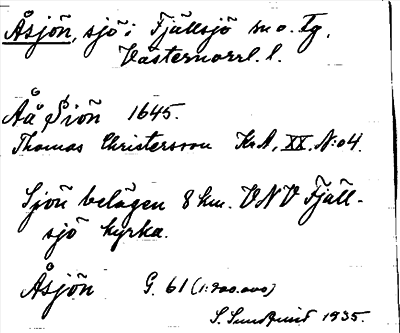 Åsjön, sjö i Fjällsjö sn o. tg,
Västernorrl. l.
Åå Siön 1645.
Thomas Christersson KrA, XX. N:o 4.
Sjön belägen 8 km. VNV Fjäll-
sjö kyrka.
Åsjön G. 61 (1:200.000)
S. Sundquist 1935.